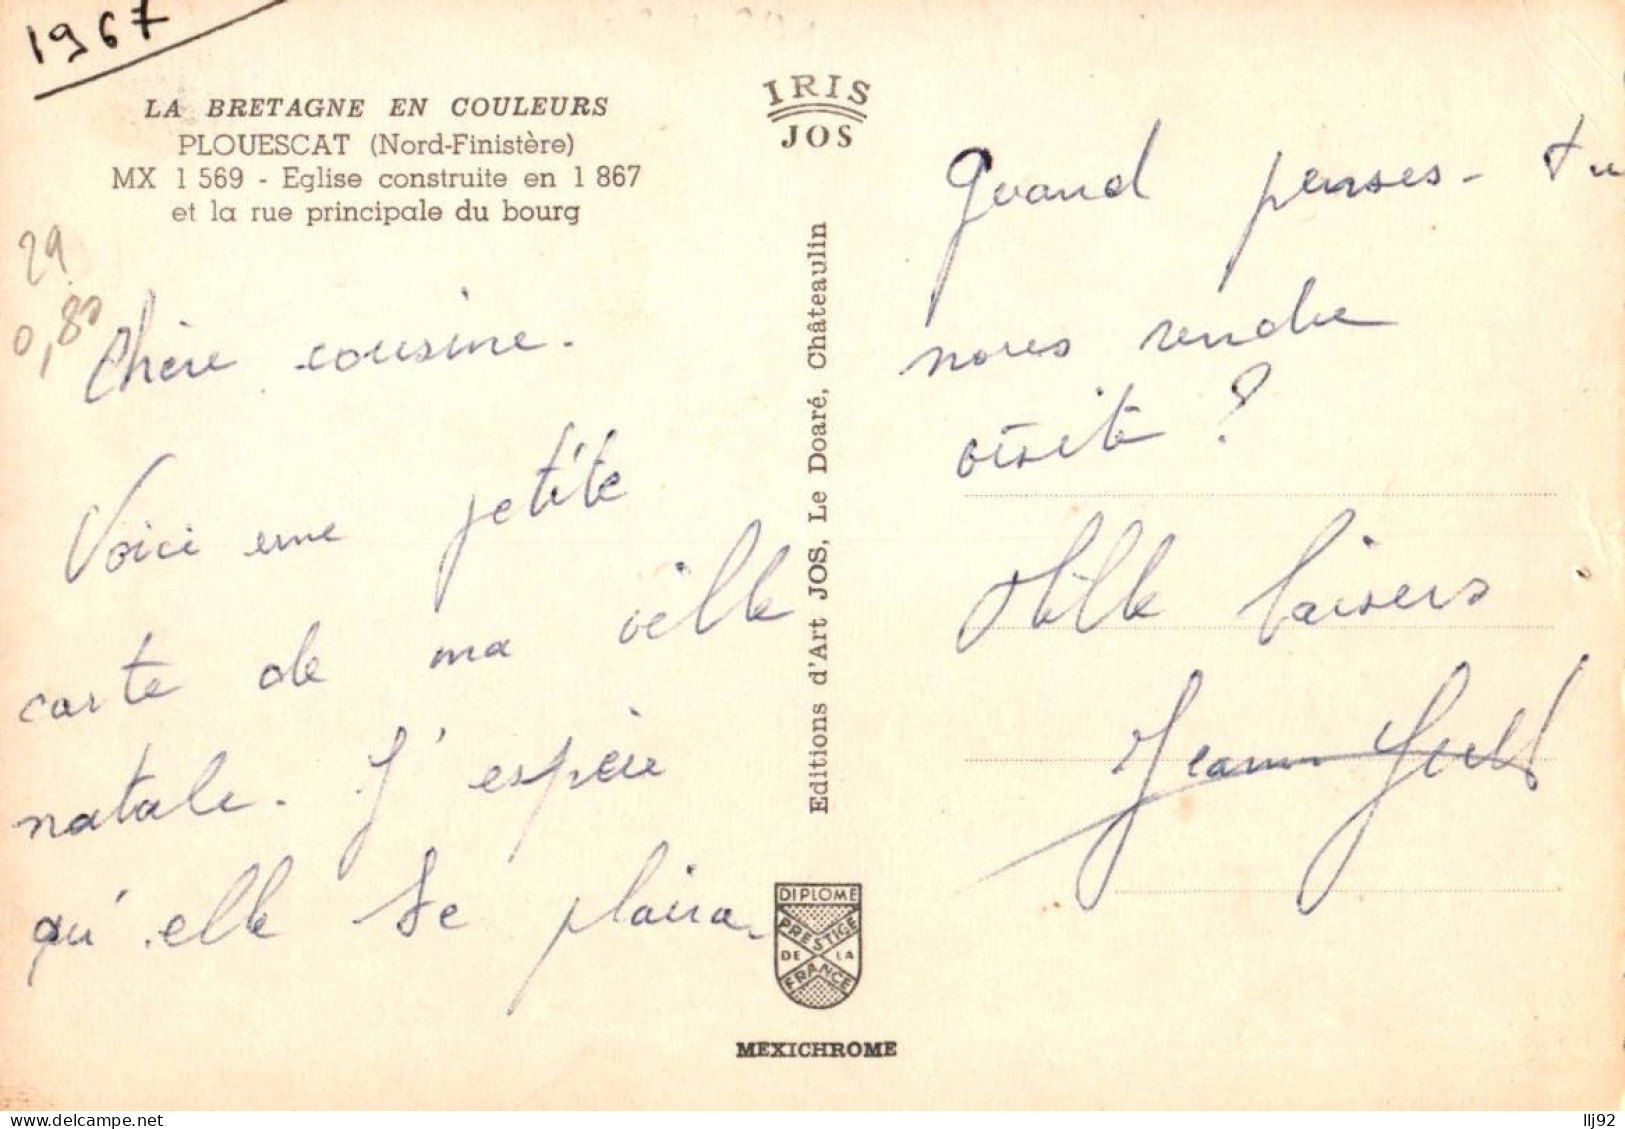 1967
LA BRETAGNE EN COULEURS
PLOUESCAT (Nord-Finistère)
MX 1 569 - Eglise construite en 1 867
et la rue principale du bourg
29
0,80
Chère cousine.
Voici une petite
carte de ma ville
natale. J'espère
qu'elle te plaira.
IRIS
JOS
Editions d'Art JOS, Le Doaré, Châteaulin
DIPLOME
PRESTIGE
DE LA
FRANCE
MEXICHROME
Quand penses-tu
nous rendre
visite ?
Mille baisers
Jeann
llj92